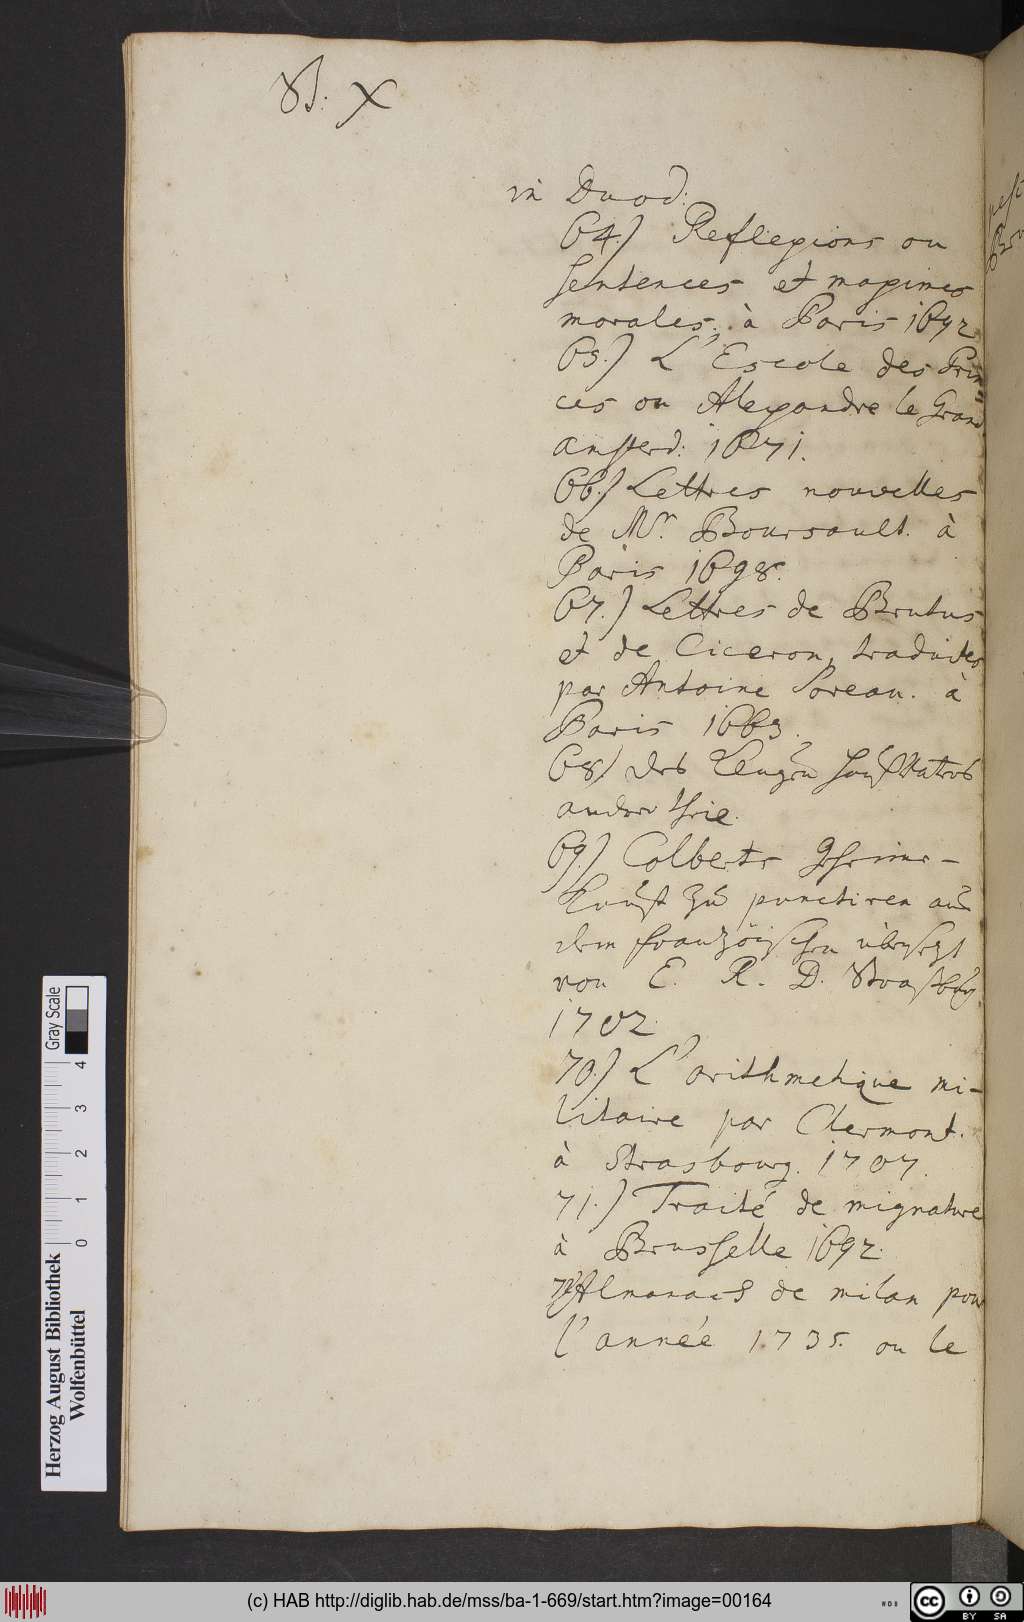 St: X
in Duod:
64.) Reflexions ou
sentences et maximes
morales, à Paris 1692
65.) L'Escole des Prin=
ces ou Alexandre le Grand
Amsterd: 1671.
66.) Lettres nouvelles
de Mr. Boursault. à
Paris 1698.
67.) Lettres de Brutus
et de Ciceron, traduites
par Antoine Soreau. à
Paris 1663.
68) des klugen Hauß Vaters
ander theil.
69.) Colberts Geheime-
kunst zu punctiren aus
dem französischen übersezt
von E. R. D. Straßburg
1702
70.) L'arithmetique mi-
litaire par Clermont.
à Strasbourg. 1707.
71.) Traité de mignature
à Brusselle 1692.
72) Almanach de milan pour
l'année 1735. ou le
Gray Scale
0 1 2 3 4
Herzog August Bibliothek
Wolfenbüttel
(c) HAB http://diglib.hab.de/mss/ba-1-669/start.htm?image=00164
cc BY SA